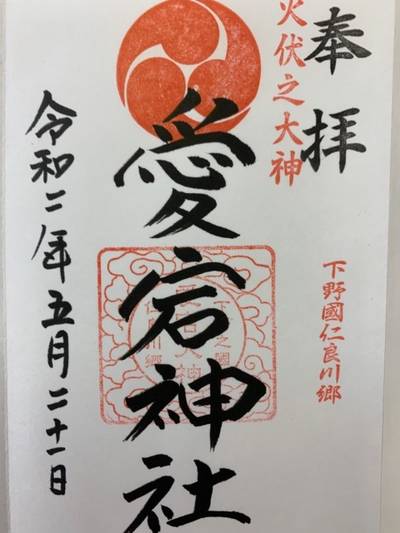 奉拝
火伏之大神
下野國仁良川郷
愛宕神社
令和二年五月二十一日